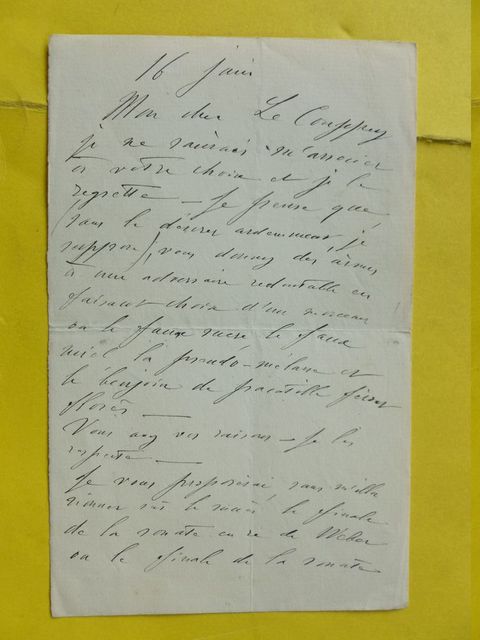 16 juin
Mon cher Le Couppey
je ne saurais m'associer
à votre choix et je le
regrette — Je pense que,
(sans le désirer ardemment, je
suppose), vous donnez des armes
à une adversaire redoutable en
faisant choix d'un morceau
où le faux sucre le faux
miel la pseudo-mélasse et
le benjoin de pacotille
Vous avez vos raisons — je les
respecte —
Je vous proposerai, sans
le finale
de la sonate en re de Weber
ou le finale de la sonate